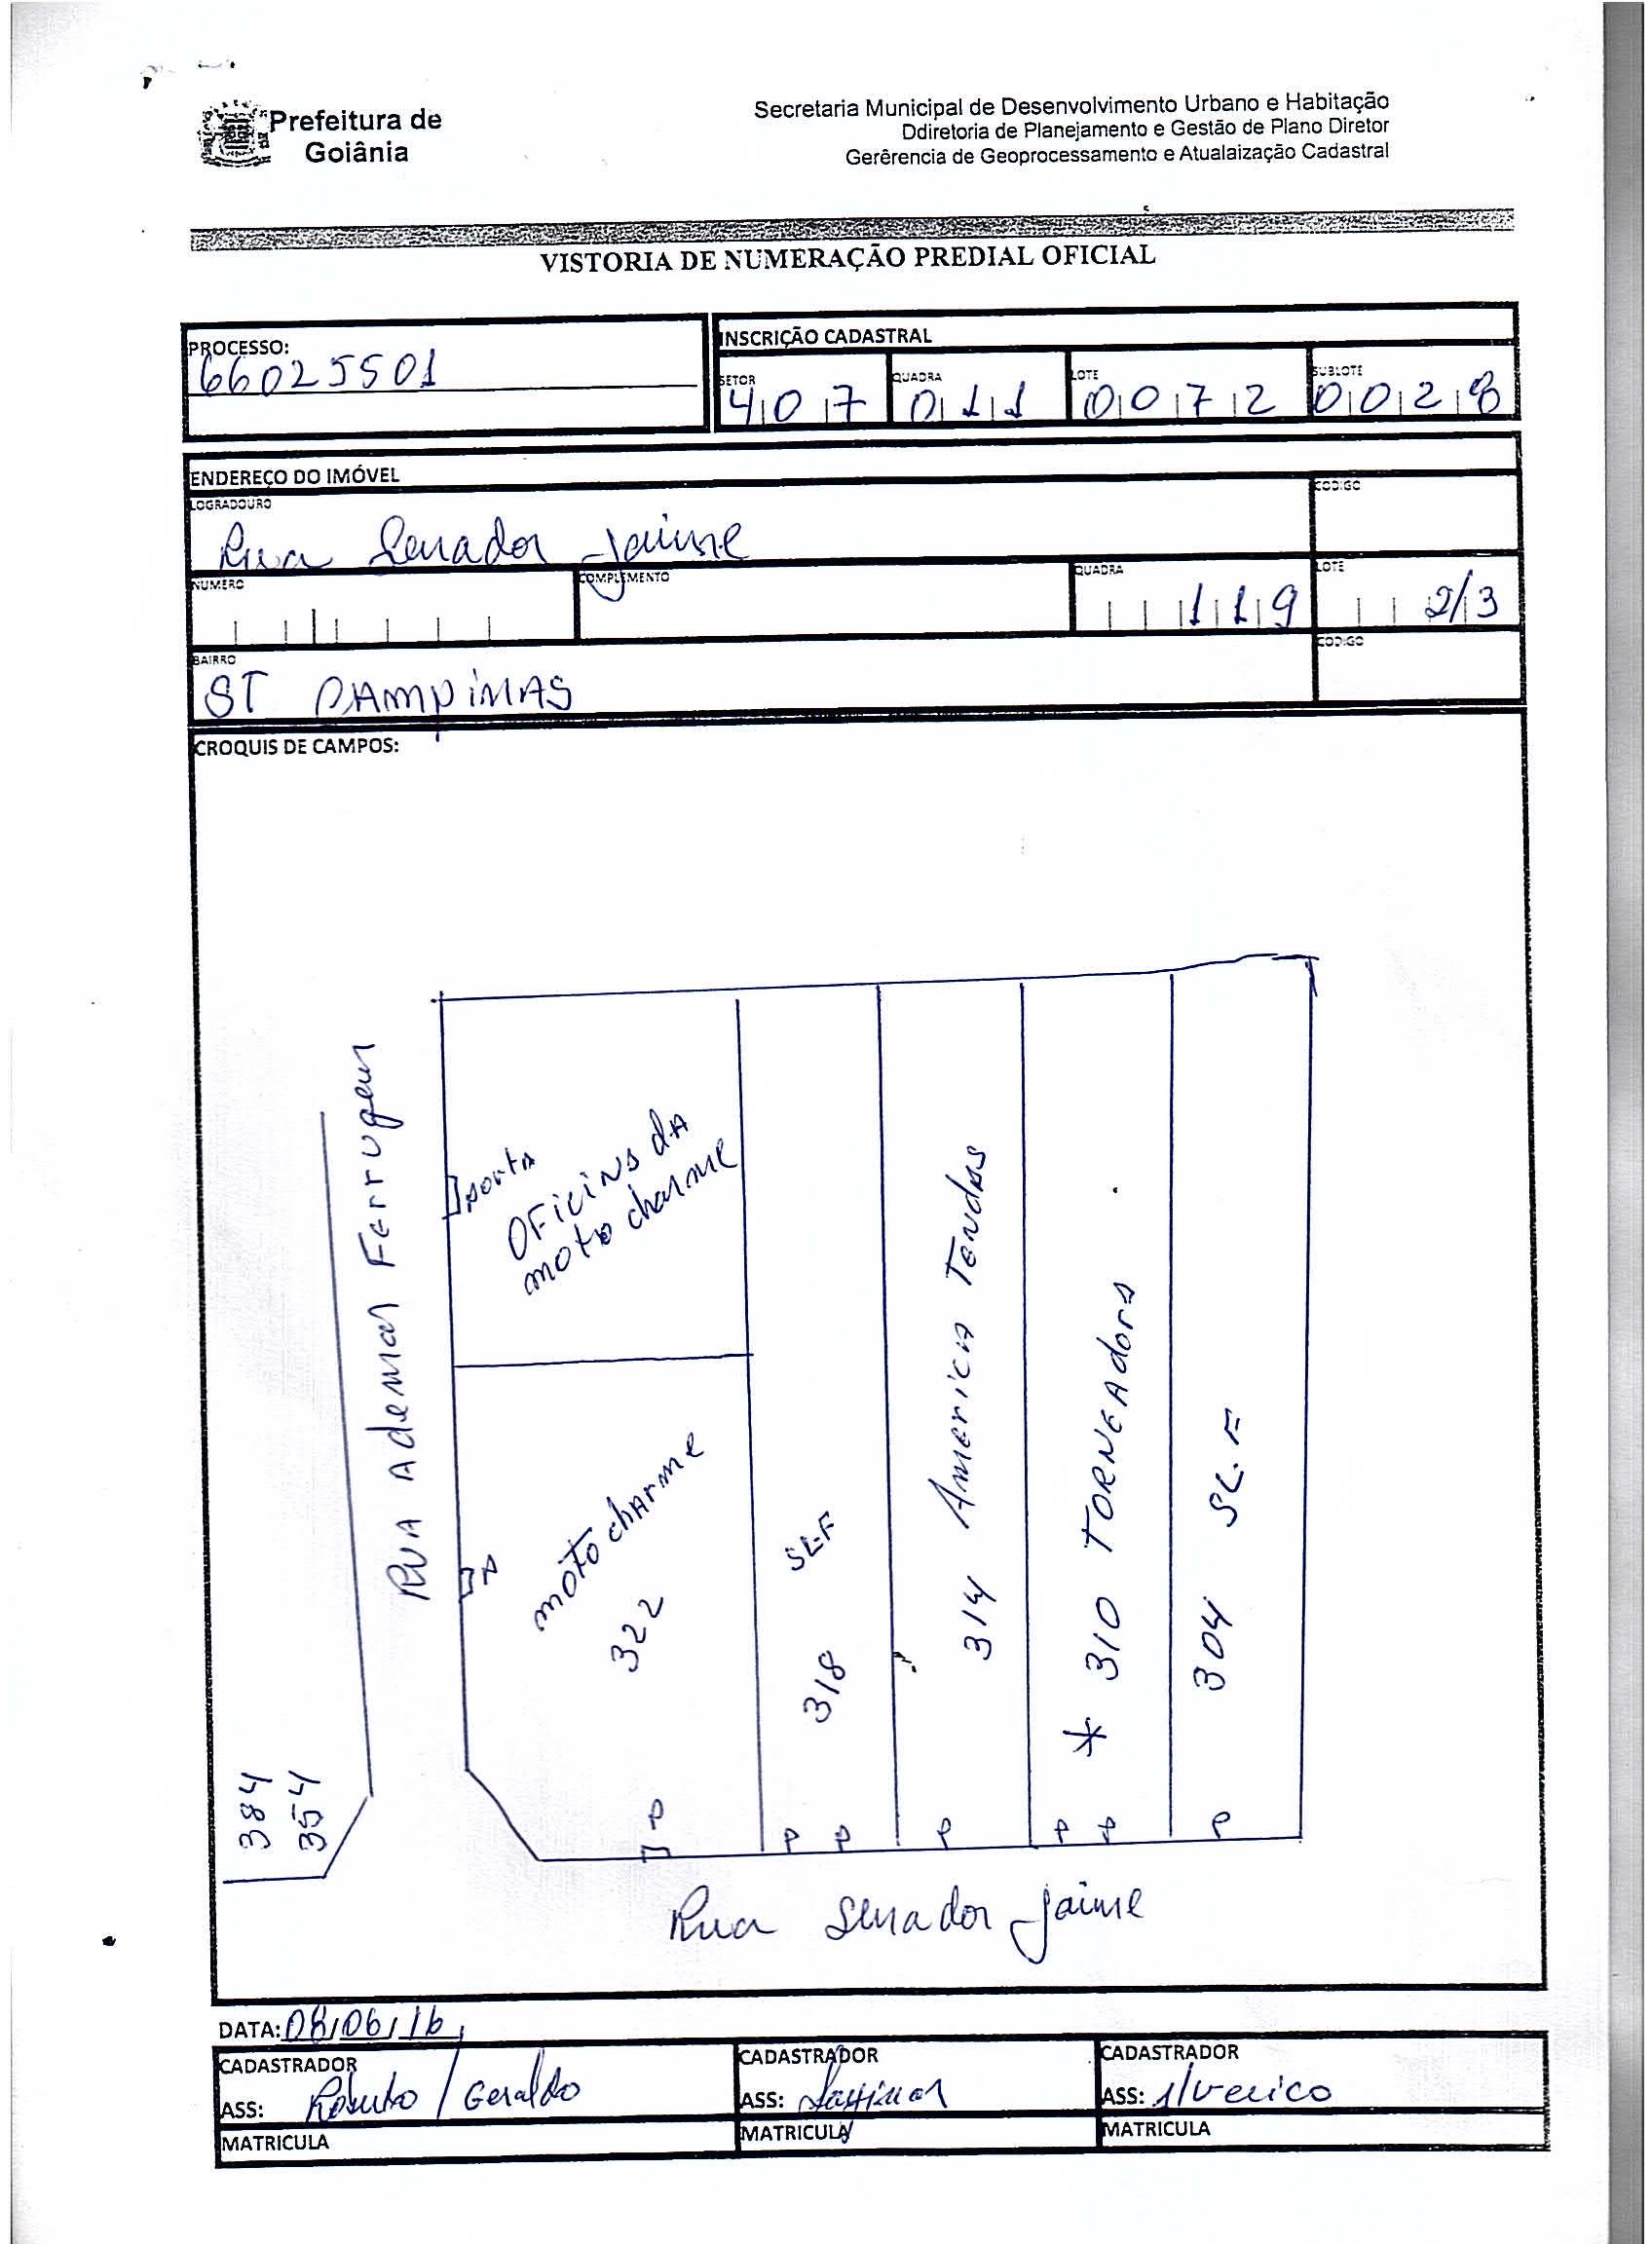 Prefeitura de
Goiânia
Secretaria Municipal de Desenvolvimento Urbano e Habitação
Ddiretoria de Planejamento e Gestão de Plano Diretor
Gerêrencia de Geoprocessamento e Atualaização Cadastral
VISTORIA DE NUMERAÇÃO PREDIAL OFICIAL
PROCESSO:
66025501
INSCRIÇÃO CADASTRAL
SETOR QUADRA LOTE SUBLOTE
407 011 0072 0028
ENDEREÇO DO IMÓVEL
LOGRADOURO CODIGO
Rua Senador Jaime
NUMERO COMPLEMENTO QUADRA LOTE
119 2/3
BAIRRO CODIGO
ST CAMPiNAS
CROQUIS DE CAMPOS:
RUA Ademar Ferrugem
porta
OFicina dA
moto charme
moto charme
322
P
P
318 SL.F
P P
314 America Tendas
P
* 310 TORNEAdora
P P
304 SL.F
P
384
354
Rua Senador Jaime
DATA: 08/06/16
CADASTRADOR CADASTRADOR CADASTRADOR
ASS: Roberto / Geraldo ASS: ASS:
MATRICULA MATRICULA MATRICULA